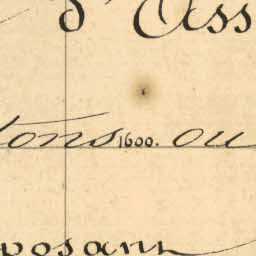 d'Ass
tons 1600. ou
posant